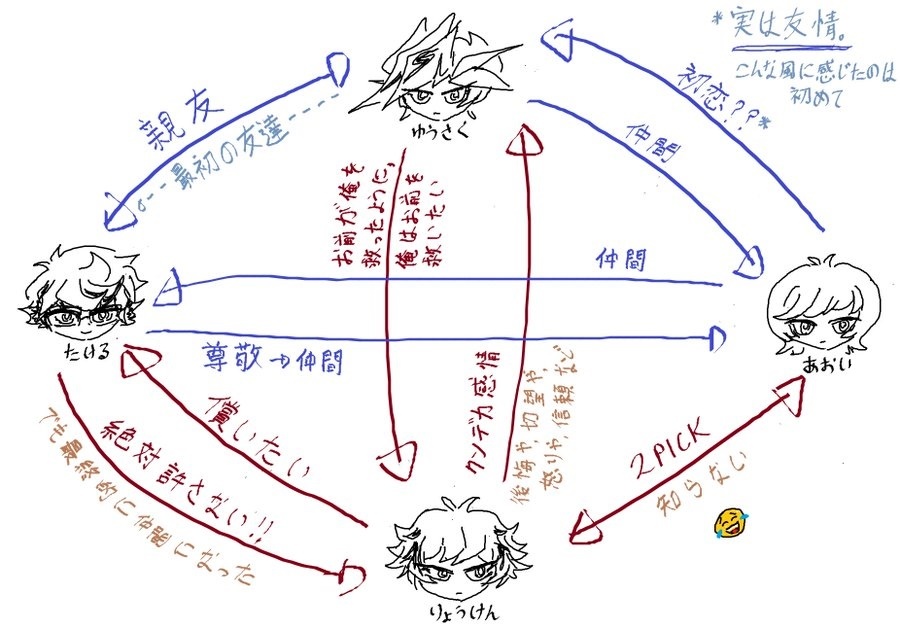 *実は友情。
こんな風に感じたのは
初めて
ゆうさく
親友
最初の友達
初恋??*
仲間
お前が俺を
救ったように、
俺はお前を
救いたい
仲間
尊敬→仲間
たける
あおい
クソデカ感情
後悔や、切望や、
怒りや、信頼など
償いたい
絶対許さない!!
でも最終的に仲間になった
2PICK
知らない
りょうけん